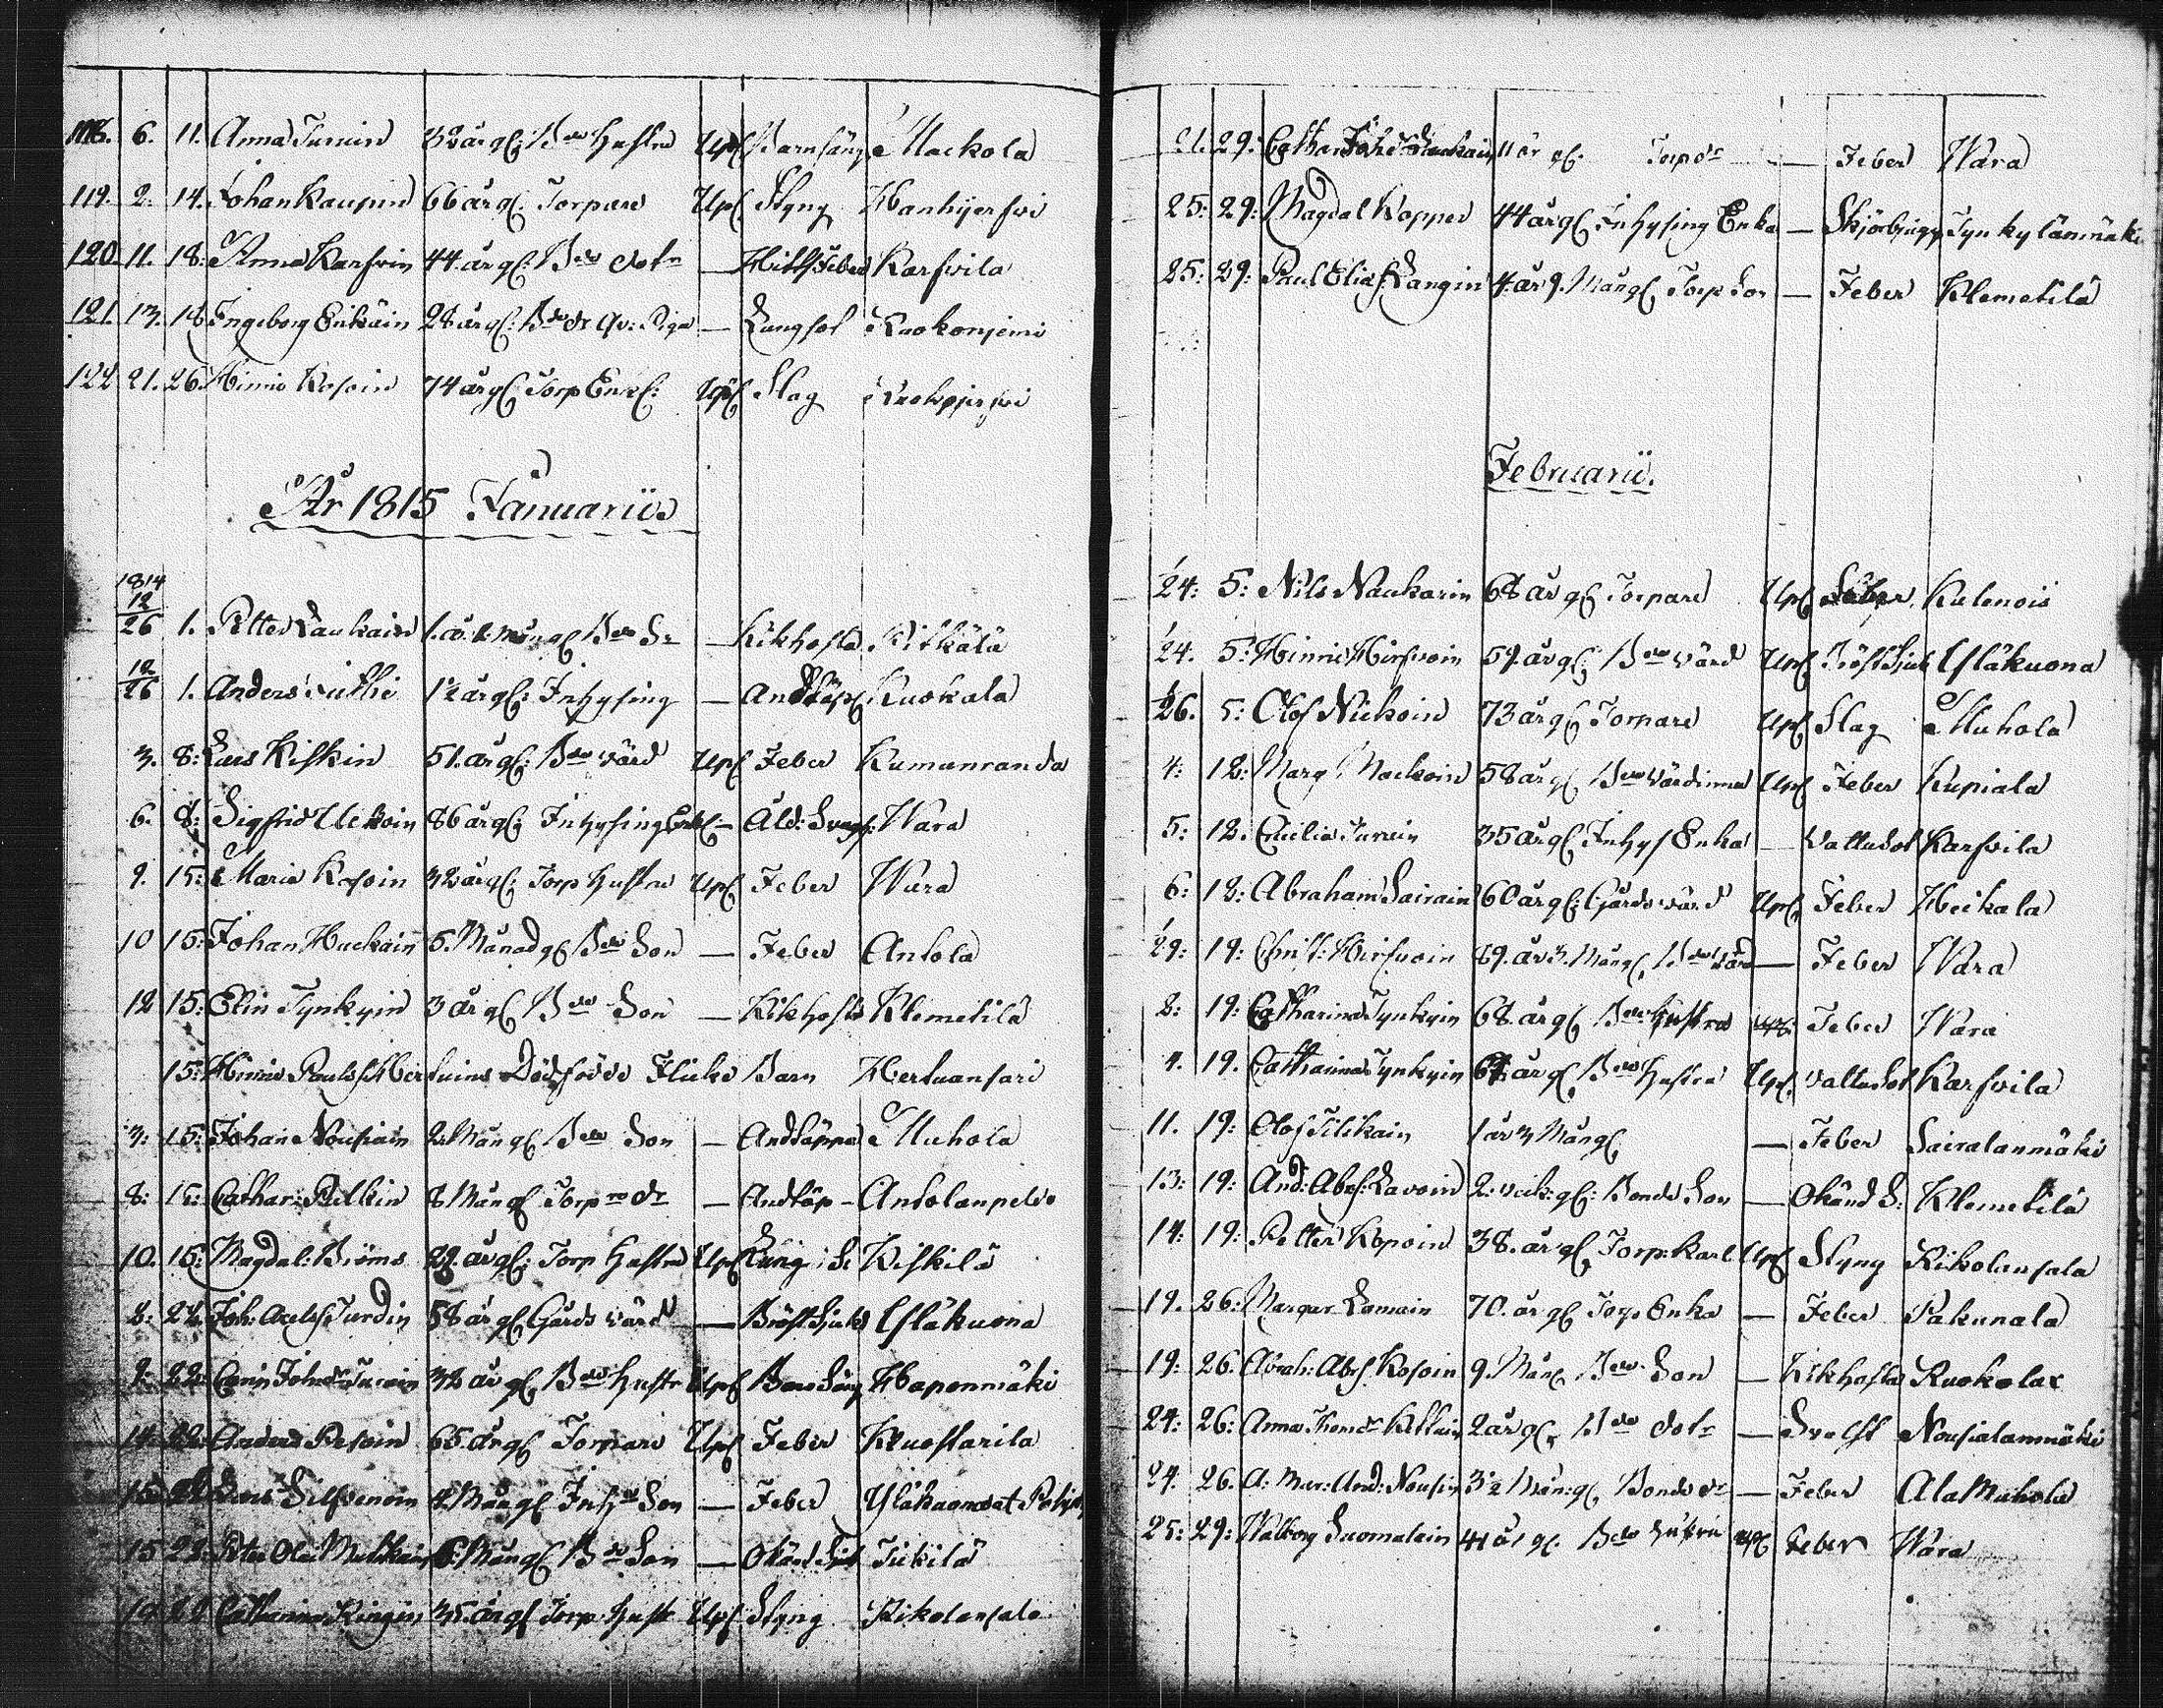 118. 6. 11. Anna Turuin 32 år gl: Bde Hustru Upf Barnsäng Mackola
119. 2. 14. Johan Kaupin 66 år gl. Torpare Upf Styng Hanhijerfvi
120 11. 18: Anna Karfvin 44 år gl: Bde dotr — Hitts Feber Karfvila
121. 13. 18 Ingeborg Erikäin 28 år gl: Bde dr Qv: Piga — Lungsot Ruokonjemi
122 21. 26. Hinric Kosoin 74 år gl Torp Enkl: Upf Slag
År 1815 Januarius
1814
12
26 1. Petter Laukain 1. år 1. mån gl Bde Sn — Kikhosta Ritkälä
12
26 1. Anders 1½ år gl: Inhysing — Andtäp Kuokala
3. 8: Lars Kiskin 51. år gl: Bde värd Upf Feber Kumunranda
6. 8: Sigfrid Uckoin 86 år gl; Inhysing Enkl — Åld: Svagh: Wara
9. 15: Maria Kosoin 32 år gl; Torp Hustru Upf Feber Wara
10 15: Johan Huckain 5. Månad gl Bde Son — Feber Anlola
12 15: Elin Tynkyin 3 år gl Bde Son — Kikhosta Klemetilä
15: Hinric Paulss Hertuins Dödfödde Flicke Barn Hertuansari
3: 15: Johan Nousiain 2. Mån gl Bde Son — Andtäppa Muhola
8: 15: Cathar: Pilkin 8 Mån gl Torp dr — Andtäp — Anlolanpeldo
10. 15: Magdal: Biöms 29. år gl: Torp Hustru Upf Lung: S: Kiskilä
8: 22. Joh: Axelss Turdin 58 år gl Gårds värd — Bröstsjuk Yläkuona
9: 22: Carin Johsdr Turuin 32 år gl Bde Hustr Upf Barnsäng Haponmäki
14. 22: Anders Pesoin 65. år gl Torpare Upf Feber Kuostarila
15 22 Lars Silfvenoin 4 Mån gl Inhs Son — Feber Yläkuona
15 22: Petter Olai Mulikain 6. Mån gl Bde Son — Okänd Sjuk Tukilä
19 22 Catharina Ringin 35. år gl Torp: Hustr Upf: Styng Rikolansalo
21. 29: Cathar Johsdr Laukain 11 år gl. Torp dr — Feber Wara
25: 29: Magdal Kopper 44 år gl Inhysing Enka — Skjörbjugg Tynkylänmäki
25: 29: Paul Eliass: Langin 4. år 9. Mån gl Torp Son — Feber Klemetilä
Februarii.
24: 5: Nils Naukarin 68 år gl Torpare Upf Feber Kulenois
24. 5: Hinric Hirfvoin 59. år gl; Bde värd Upf Bröstsjuk Yläkuona
26. 5: Olof Nickoin 73 år gl Torpare Upf Slag Muhola
4: 12: Marg: Mackoin 58 år gl Bde Värdinna Upf Feber Kupiala
5: 12. Cecilia Turuin 35 år gl Inhys Enka — Vattusot Karfvila
6: 12: Abraham Sairain 60 år gl: Gårds värd Upf Feber Heikala
29: 19: Christ: Hirfvoin 89. år 3. Mån gl, Bde Värd — Feber Wara
2: 19: Catharina Tynkyin 68. år gl Bde Hustru Upf: Feber Wara
4. 19. Catharina Tynkyin år gl Bde Hustru Upf. Vattusot Karfvila
11. 19: Olof Tilikain 1 år 3 Mån gl — Feber Sairalanmäki
13: 19: And: Abrs: Lavoin 2: veck: gl: Bonde Son — Okänd S: Klemetilä
14: 19: Petter Kopoin 38. år gl Torp: karl Upf Styng Rikolansala
19. 26: Margar Lamain 70. år gl Torp Enka — Feber Pakunala
19: 26. Abrah: Abrs. Kosoin 9. Mån Bde Son — Kikhosta Ruokolax
24: 26: Anna Thomdr Killain 2 år gl, Bde dotr — Svulst Nousialanmäki
24. 26. A: Mar: And: Nousin 3½ Mån: gl Bonde dr — Feber Ala Muhola
25: 29: Walborg Suomalain 41 år gl. Bde Hustru Upf Feber Wara